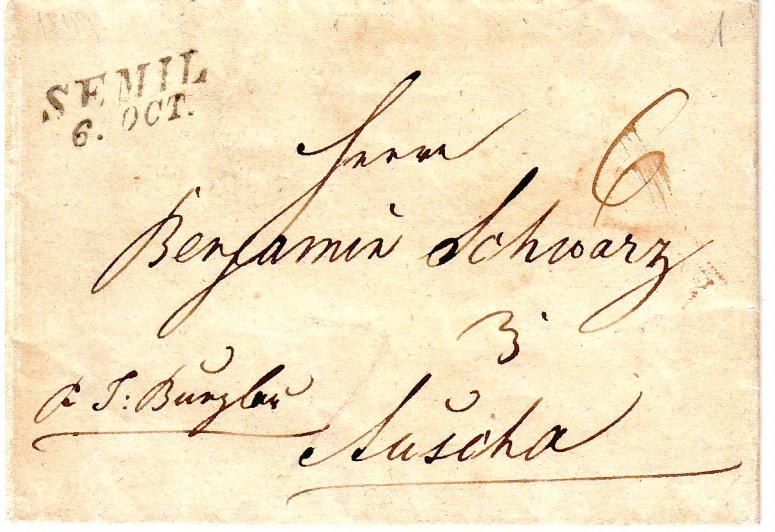 SEMIL
6. OCT.
1
6
Herrn
Benjamin Schwarz
3
P J: Bunzlau
Auscha